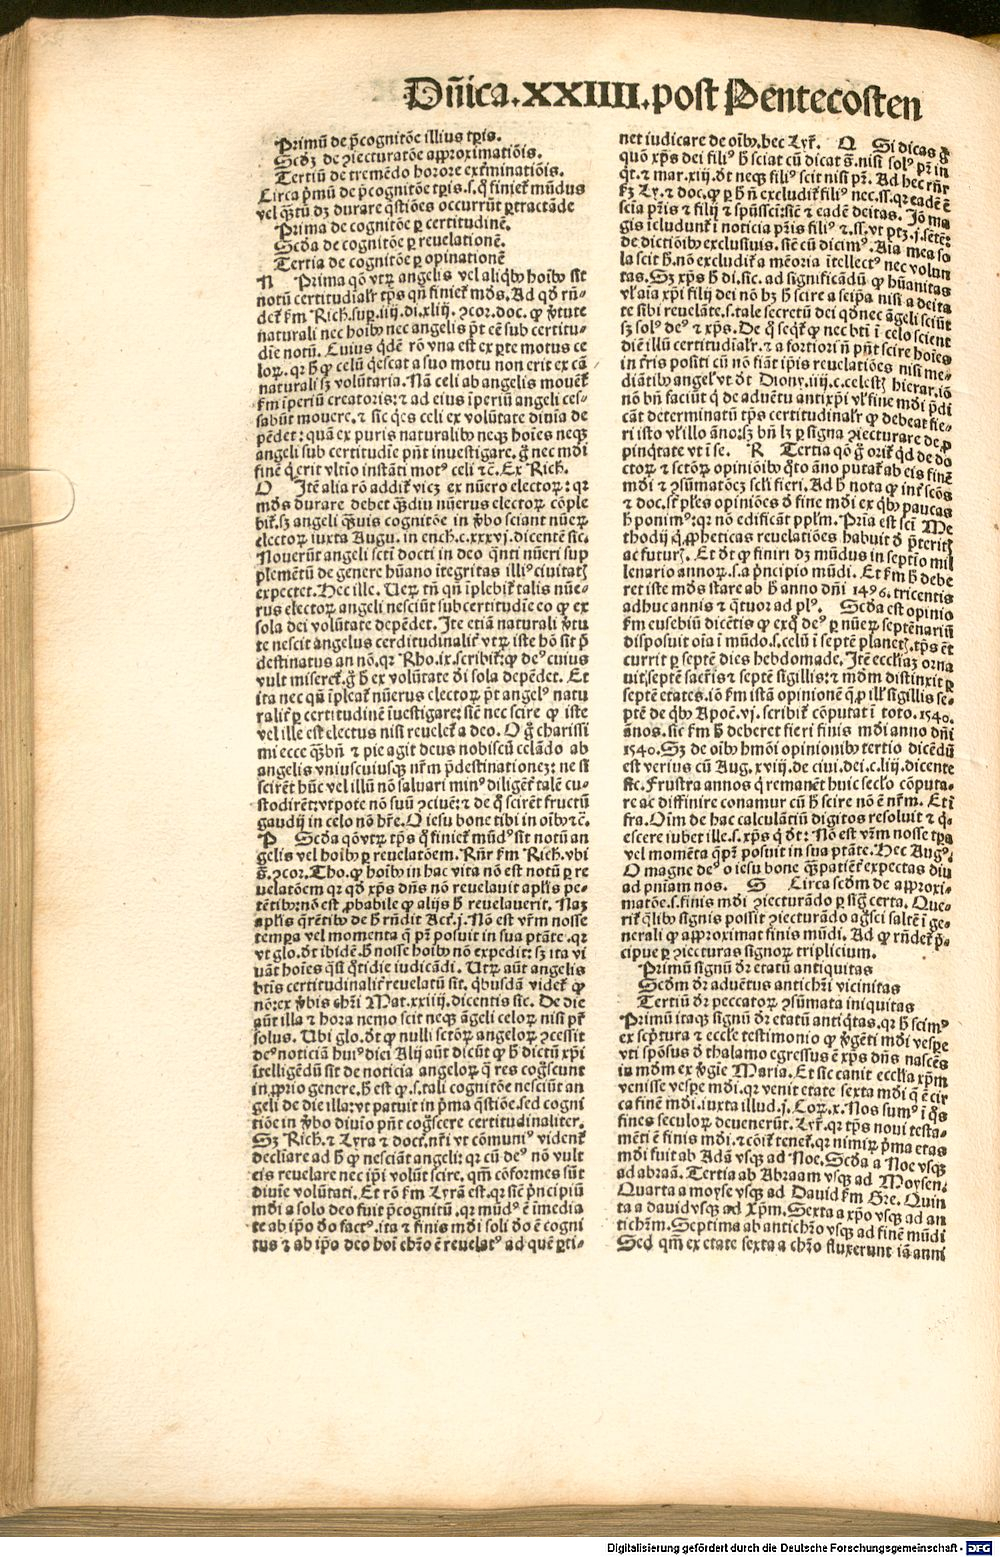 Dñica.XXIIII.post Pentecosten
Primũ de p̃cognitõe illius tꝑis.
Scd̃ꝫ de ꝯiecturatõe approximatiõis.
Tertiũ de tremẽdo horore exterminatiõis.
Circa p̃mũ de p̃cognitõe tꝑis.s.q̃ finiet mũdus
vel q̃ꝫtũ dꝫ durare q̃stiões occurrũt ꝑtractãde
Prima de cognitõe ꝑ certitudinẽ.
Scd̃a de cognitõe ꝑ reuelationẽ.
Tertia de cognitõe ꝑ opinationẽ
N Prima qõ vtꝝ angelis vel aliqͥbꝰ hoĩbꝰ sit
notũ certitudĩalr̃ tp̃s qñ finiet mũds. Ad qd̃ rñ-
det̃ ẜm Rich.suꝑ.iiij.di.xliij. ꝯcor.doc. ꝙ v̾tute
naturali nec hoĩbꝰ nec angelis p̃t eẽ sub certitu-
dĩe notũ. Cuius qͥdẽ rõ vna est ex ꝑte motus ce
loꝝ. qꝛ h̃ ꝙ celũ q̃escat a suo motu non erit ex cã
naturali sꝫ volũtaria. Nã celi ab angelis mouẽt̃
ẜm ĩperiũ creatoris:⁊ ad eius ĩperiũ angeli ces-
sabũt mouere.⁊ sic q̃es celi ex volũtate diuĩa de
pẽdet: quã ex puris naturalibꝰ neqꝫ hoĩes neqꝫ
angeli sub certitudĩe pñt inuestigare. g̃ nec mõi
finẽ q̃ erit vltĩo instãti motꝰ celi ⁊cẽ. Ex Rich.
O Itẽ alia rõ addit̃ vicꝫ ex nũero electoꝝ: qꝛ
mũds durare debet q̃ꝫdiu nũerus electoꝝ cõple
bit̃.sꝫ angeli q̃ꝫuis cognitõe in v̾bo sciant nũeꝝ
electoꝝ iuxta Augu. in ench.c.xxxvj.dicentẽ sic.
Nouerũt angeli sc̃ti docti in deo qͣnti nũeri sup
plemẽtũ de genere hũano ĩtegritas illiꝰ ciuitatꝭ
expectet. Hec ille. Ueꝝ tñ qñ ĩplebit̃ talis nũe-
rus electoꝝ angeli nesciũt sub certitudĩe eo ꝙ ex
sola dei volũtate depẽdet. Ite etiã naturali v̾tu
te nescit angelus cerditudinalit̾ vtꝝ iste hõ sit p̃
destinatus an nõ.qꝛ Rho.ix.scribit̃:ꝙ deꝰ cuius
vult miseret̃.g̃ h̃ ex volũtate d̃i sola depẽdet. Et
ita nec qñ ĩpleat̃ nũerus electoꝝ p̃t angelꝰ natu
ralit̾ ꝑ certitudinẽ ĩuestigare: sic̃ nec scire ꝙ iste
vel ille est electus nisi reuelet̃ a deo. O g̃ charissi
mi ecce q̃ꝫbñ ⁊ pie agit deus nobiscũ celãdo ab
angelis vniuscuiusqꝫ nr̃m p̃destinationeꝫ: ne si
scirẽt hũc vel illũ nõ saluari minꝰ diligẽt̾ talẽ cu-
stodirẽt:vtpote nõ suũ ꝯciuẽ:⁊ de q̃ scirẽt fructũ
gaudij in celo nõ hr̃e.O iesu bone tibi in oĩbꝰ ⁊cẽ.
P Scd̃a qõ vtꝝ tp̃s q̃ finiet̃ mũdꝰ sit notũ an
gelis vel hoĩbꝰ ꝑ reuelatõem. Rñr̃ ẜm Rich.vbi
s̃.ꝯcor.Tho.ꝙ hoĩbꝰ in hac vita nõ est notũ ꝑ re
uelatõem qꝛ qd̃ xp̃s dñs nõ reuelauit apl̃is pe-
tẽtibꝰ:nõ est ꝓbabile ꝙ alijs h̃ reuelauerit. Naꝫ
apl̃is q̃rẽtibꝰ de h̃ rñdit Act̃.j. Nõ est vr̃m nosse
tempꝑa vel momenta q̃ pr̃ posuit in sua ptãte.qꝛ
vt glo.d̃t ibidẽ.h̃ nosse hoĩbꝰ nõ expedit: sꝫ ita vi
uãt hoĩes qͣsi q̃tidie iudicãdi. Utꝝ aũt angelis
bt̃is certitudinalit̾ reuelatũ sit. qͥbusdã videt̃ ꝙ
nõ:ex v̾bis chr̃i Mat.xxiiij.dicentis sic. De die
aũt illa ⁊ hora nemo scit neqꝫ ãgeli celoꝝ nisi pr̃
solus. Ubi glo.d̃t ꝙ nulli sc̃toꝝ angeloꝝ ꝯcessit
deꝰ noticiã huiꝰ diei Alij aũt dicũt ꝙ h̃ dictũ xp̃i
ĩtelligẽdũ sit de noticia angeloꝝ q̃ res cog̃scunt
in ꝓprio genere.h̃ est ꝙ.s.tali cognitõe nesciũt an
geli de die illa:vt patuit in p̃ma q̃stiõe.sed cogni
tiõe in v̾bo diuĩo pñt cog̃scere certitudinaliter.
Sꝫ Rich.⁊ Lyra ⁊ doct̾.nr̃i vt cõmuniꝰ vident̃
decliare ad h̃ ꝙ nesciãt angeli: qꝛ cũ deꝰ nõ vult
eis reuelare nec ip̃i volũt scire. qm̃ cõformes sũt
diuĩe volũtati. Et rõ ẜm Lyrã est.qꝛ sic̃ p̃ncipiũ
mõi a solo deo fuit p̃cognitũ .qꝛ mũdꝰ ẽ ĩmedia
te ab ip̃o d̃o factꝰ.ita ⁊ finis mõi soli d̃o ẽ cogni
tus ⁊ ab ip̃o deo hoĩ chr̃o ẽ reuelatꝰ ad quẽ ꝑti-
net iudicare de oĩbꝰ.hec Lyr̃. Q Si dicas g̃
quõ xp̃s dei filiꝰ h̃ sciat cũ dicat s̃.nisi solꝰ pr̃ in
qͥt.⁊ mar.xiij.d̃t neqꝫ filiꝰ scit nisi pr̃. Ad hec rñr̃
ẜꝫ Ly.⁊ doc.ꝙ ꝑ h̃ ñ excludit̃ filiꝰ nec.ss.qꝛ eadẽ ẽ
scĩa pr̃is ⁊ filij ⁊ sp̃ussc̃i:sic̃ ⁊ eadẽ deitas. Iõ ma
gis ĩcludunt̃ ĩ noticia pr̃is filiꝰ ⁊.ss.vt ptꝫ.j.sẽtẽ:
de dictiõibꝰ exclusiuis. sic̃ cũ dicimꝰ. Aĩa mea so
la scit h̃.nõ excludit̃ mẽoria ĩtellectꝰ nec volun
tas. Sꝫ xp̃s h̃ di.sic.ad significãdũ ꝙ hũanitas
vl̃ aĩa xp̃i filij dei nõ hꝫ h̃ scire a seip̃a nisi a deita
te sibi reuelãte.s.tale secretũ dei qd̃ nec ãgeli sciũt
sꝫ solꝰ deꝰ ⁊ xp̃s. De q̃ seqͥt̃ ꝙ nec bt̃i ĩ celo scient
diẽ illũ certitudĩalr̃.⁊ a fortiori ñ pñt scire hoĩes
in tr̃is positi cũ nõ fiãt ip̃is reuelatiões nisi me-
diãtibꝰ angelꝭ vt d̃t Diony.iiij.c.celestꝭ hierar.iõ
nõ bñ faciũt q̃ de aduẽtu antixp̃i vl̃ fine mõi p̃di
cãt determinatũ tp̃s certitudinalr̃ ꝙ debeat fie-
ri isto vl̃ illo ãno:sꝫ bñ lꝫ ꝑ signa ꝯiecturare de ꝓ
pinq̃tate vt ĩ se. R Tertia qõ g̃ orit̃ qͥd de do
ctoꝝ ⁊ sc̃toꝝ opiniõibꝰ q̃to ãno putat̃ ab eis finẽ
mõi ⁊ ꝯsũmatõeꝫ sel̃i fieri. Ad h̃ nota ꝙ int̾ sc̃os
⁊ doc.st̃ pl̃es opiniões d̾ fine mõi ex qͥbꝰ paucas
h̃ ponimꝰ:qꝛ nõ edificãt ppl̃m. Pr̃ia est sc̃i Me
thodij q̃ ꝓpheticas reuelatiões habuit d̾ p̃teritꝭ
ac futurꝭ. Et d̃t ꝙ finiri dꝫ mũdus in septĩo mil
lenario annoꝝ.s.a p̃ncipio mũdi. Et ẜm h̃ debe
ret iste mõs stare ab h̃ anno dñi 1496. tricentis
adhuc annis ⁊ q̃tuor ad plꝰ. Scd̃a est opinio
ẜm eusebiũ dicẽtis ꝙ exq̃ deꝰ ꝑ nũeꝝ septẽnariũ
disposuit oĩa ĩ mũdo.s.celũ ĩ septẽ planetꝭ.tp̃s ẽt
currit ꝑ septẽ dies hebdomade. Itẽ eccl̃iaꝫ orna
uit septẽ sacr̃is ⁊ septẽ sigillis:⁊ mõm distinxit ꝑ
septẽ etates.iõ ẜm istã opinionẽ q̃ ꝓ illꝭ sigillis se-
ptẽ de qͥbꝰ Apoč.vj.scribit̃ cõputat ĩ toto.1540.
anos.sic ẜm h̃ deberet fieri finis mõi anno dñi
1540. Sꝫ de oĩbꝰ hmõi opiniõibꝰ tertio dicẽdũ
est verius cũ Aug.xviij.de ciui.dei.c.liij.dicente
sic. Frustra annos q̃ remanẽt huic sec̃lo cõputa-
re ac diffinire conamur cũ h̃ scire nõ ẽ nr̃m. Et ĩ
fra. Oĩm de hac calculãtiũ digitos resoluit ⁊ q̃-
escere iubet ille.s.xp̃s q̃ d̃t: Nõ est vr̃m nosse tꝑa
vel momẽta q̃ pr̃ posuit in sua ptãte. Hec Augꝰ.
O magne deꝰ o iesu bone q̃ꝫpatiẽt̾ expectas diu
ad pñiam nos. S Circa scd̃m de approxi-
matõe.s.finis mõi ꝯiecturãdo ꝑ sig̃ certa. Que-
rit̃ q̃libꝰ signis possit ꝯiecturãdo ag̃sci saltẽ ĩ ge-
nerali ꝙ approximat finis mũdi. Ad ꝙ rñdet̃ p̃-
cipue ꝑ ꝯiecturas signoꝝ triplicium.
Primũ signũ dr̃ etatũ antiquitas
Scd̃m dr̃ aduẽtus antichr̃i vicinitas
Tertiũ dr̃ peccatoꝝ ꝯsũmata iniquitas
Primũ itaqꝫ signũ dr̃ etatũ antiq̃tas.qꝛ h̃ scimꝰ
ex scp̃tura ⁊ eccl̃ie testimonio ꝙ v̾gẽti mõi vesꝑe
vti spõsus d̾ thalamo egressus ẽ xp̃s dñs nascẽs
in mõm ex v̾gĩe Maria. Et sic canit eccl̃ia xp̃m
venisse vesꝑe mõi.qꝛ venit etate sexta mõi q̃ ẽ cir
ca finẽ mõi.iuxta illud.j.Coꝝ.x.Nos sumꝰ ĩ q̃s
fines seculoꝝ deuenerũt. Lyr̃.qꝛ tp̃s noui testa-
mẽti ẽ finis mõi.⁊ cõit̾ tenet̃.qꝛ nimiꝝ p̃ma etas
mõi fuit ab Adã vsqꝫ ad Noe.Scd̃a a Noe vsqꝫ
ad abraã. Tertia ab Abraam vsqꝫ ad Moysen.
Quarta a moyse vsqꝫ ad Dauid ẜm Gre. Quin
ta a dauid vsqꝫ ad Xp̃m. Sexta a xp̃o vsqꝫ ad an
tichr̃m. Septima ab antichr̃o vsqꝫ ad finẽ mũdi
Sed qm̃ ex etate sexta a chr̃o fluxerunt iã anni
Digitalisierung gefördert durch die Deutsche Forschungsgemeinschaft - DFG